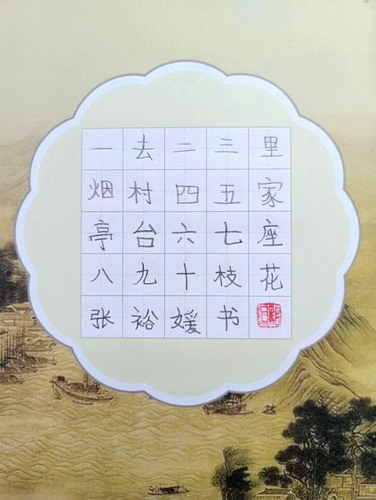 一去二三里
烟村四五家
亭台六七座
八九十枝花
张裕媛书